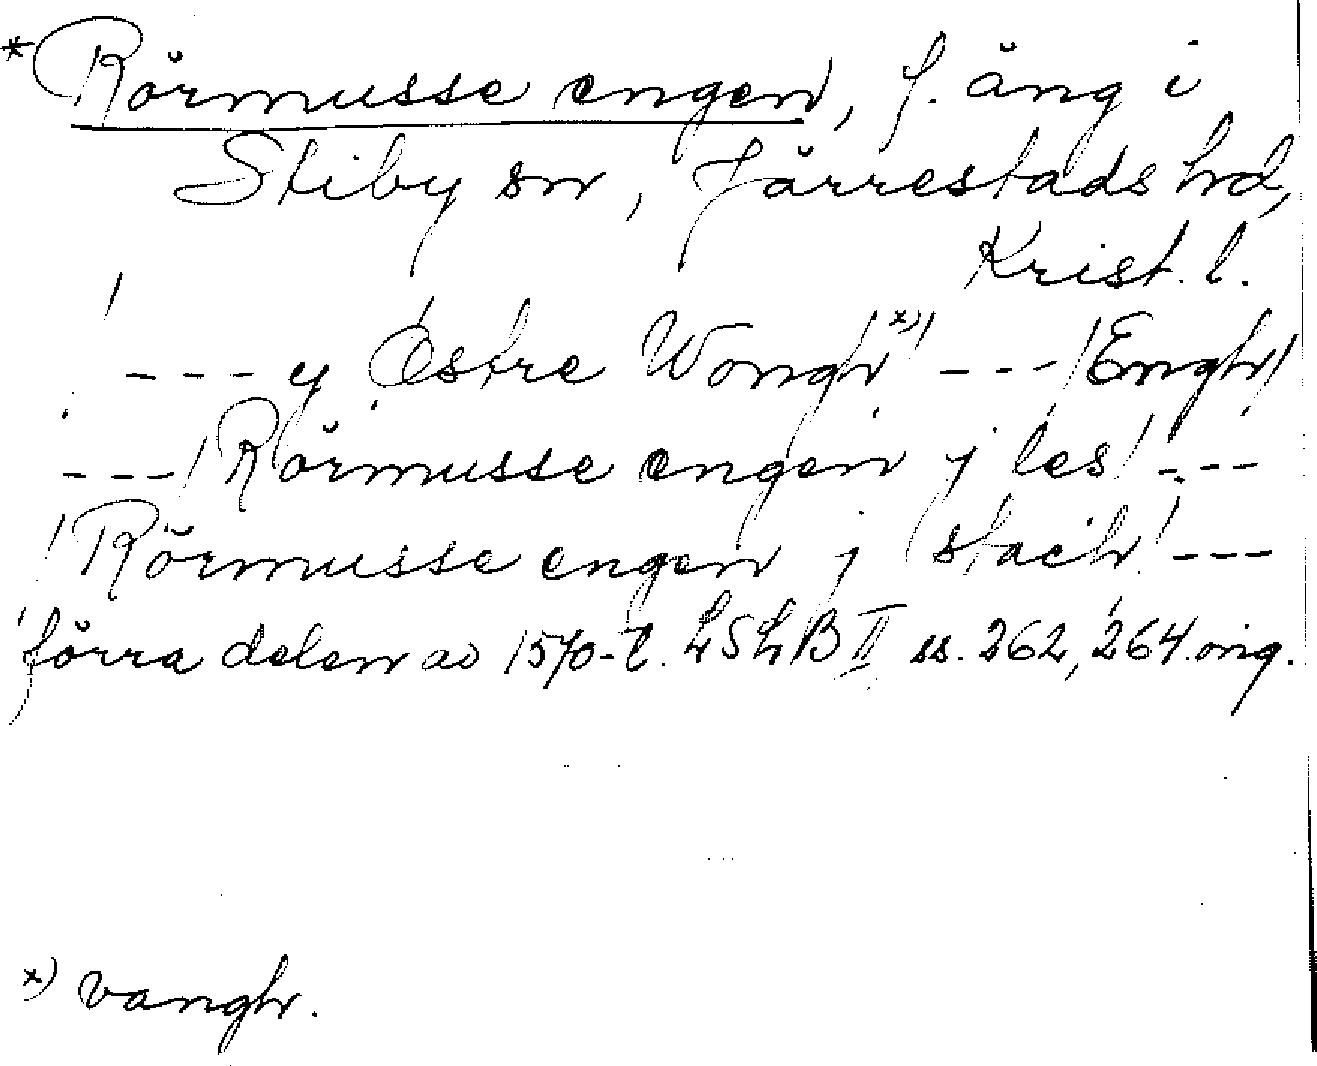 * Rörmusse engen, f. äng i
Stiby sn, Järrestads hd,
Krist. l.
--- y Østre Wongh x) --- / Engh /
--- / Rörmusse engen j les / ---
/ Rörmusse engen j stach / ---
förra delen av 1570-t. LSLB II ss. 262, 264. orig.
x) vangh.